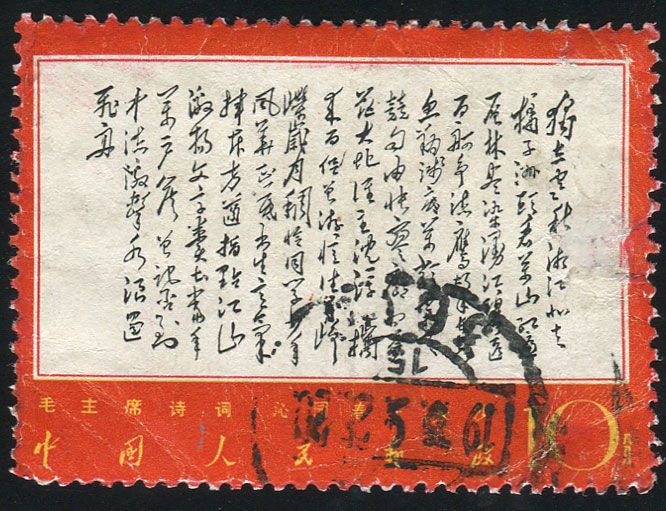 独立寒秋湘江北去
橘子洲头看万山红遍
层林尽染漫江碧透
百舸争流鹰击长空
鱼翔浅底万类霜天
竞自由怅寥廓问苍
茫大地谁主沉浮携
来百侣曾游忆往昔峥
嵘岁月稠恰同学少年
风华正茂书生意气
挥斥方遒指点江山
激扬文字粪土当年
万户侯曾记否到
中流击水浪遏
飞舟
毛主席诗词 沁园春
中国人民邮政 10分
15